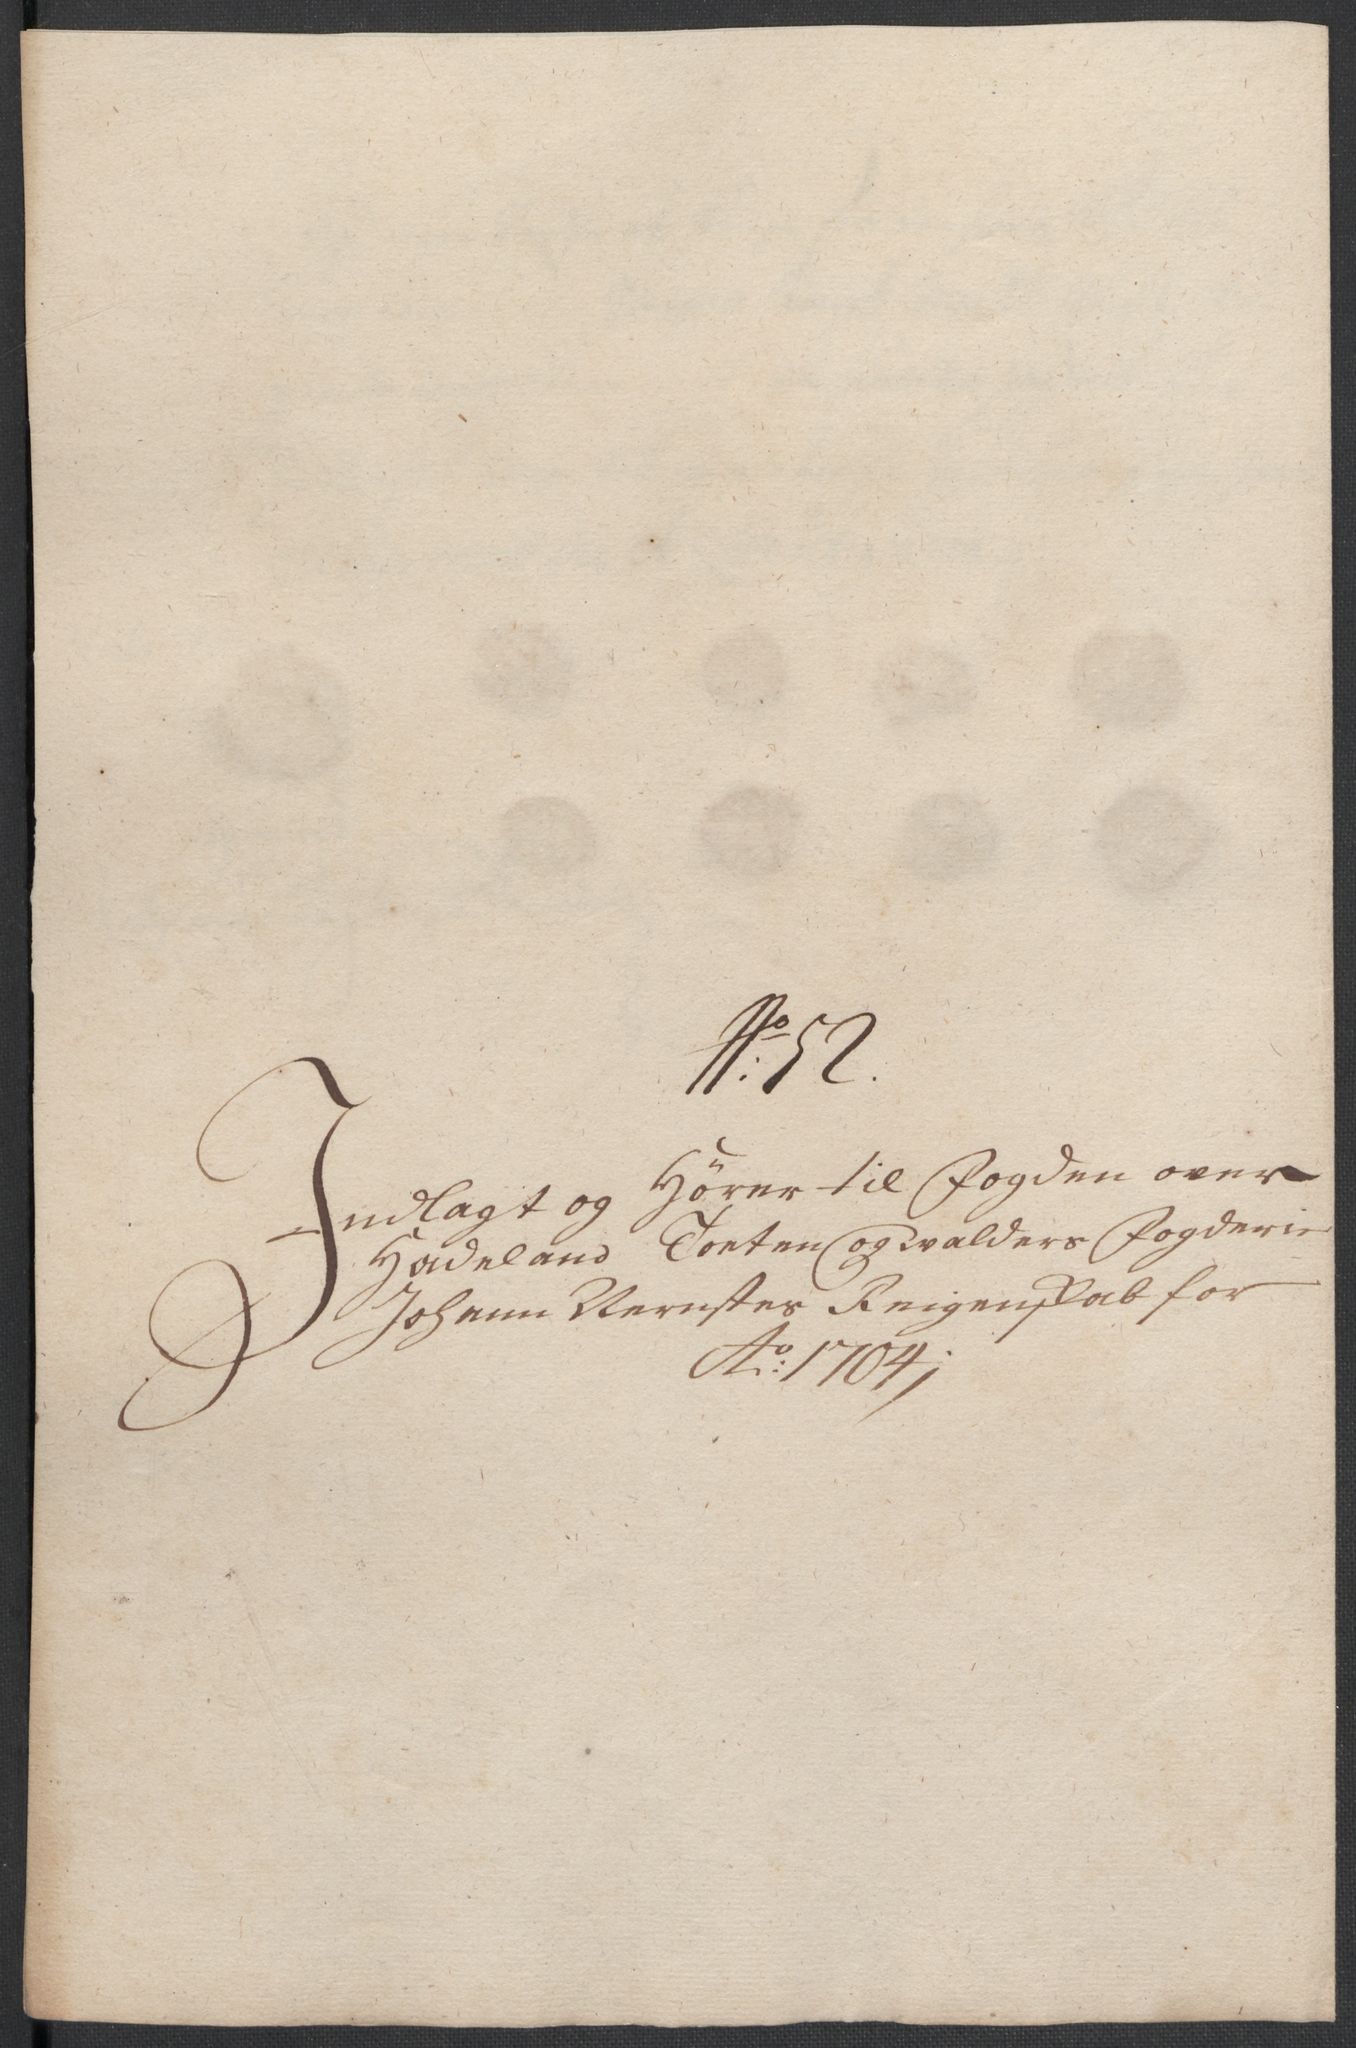 No: 52.
Indlagt og Hörer til Fogden over
Hadeland Toeten og walders Fogderie
Johann Vernstes Reigenskab for
Ao: 1704;